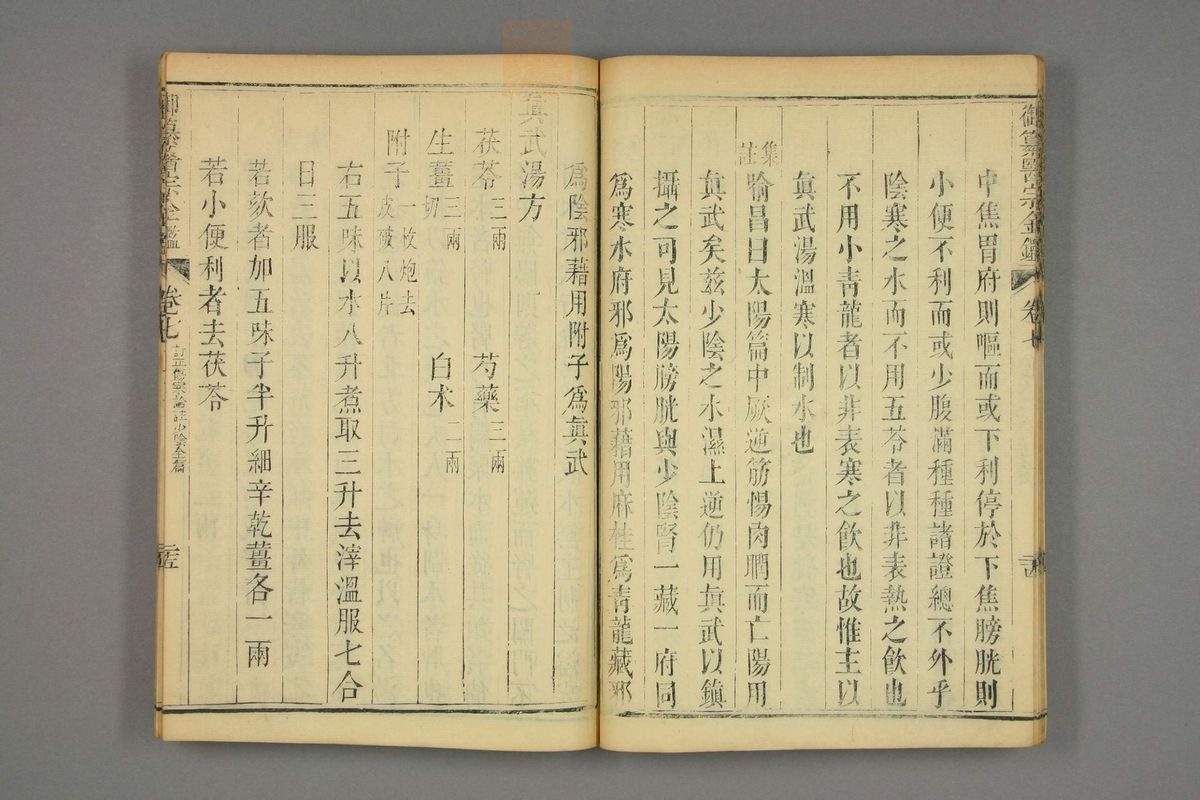 御纂醫宗金鑑 卷七
中焦胃府則嘔而或下利停於下焦膀胱則
小便不利而或少腹滿種種諸證總不外乎
陰寒之水而不用五苓者以非表熱之飲也
不用小青龍者以非表寒之飲也故惟主以
眞武湯溫寒以制水也
集註
喻昌曰太陽篇中厥逆筋惕肉瞤而亡陽用
眞武矣茲少陰之水濕上逆仍用眞武以鎮
攝之可見太陽膀胱與少陰腎一藏一府同
爲寒水府邪爲陽邪藉用麻桂爲青龍藏邪
爲陰邪藉用附子爲眞武
眞武湯方
茯苓三兩 芍藥三兩
生薑三兩切 白朮二兩
附子一枚炮去皮破八片
右五味以水八升煮取三升去滓溫服七合
日三服
若欬者加五味子半升細辛乾薑各一兩
若小便利者去茯苓
御纂醫宗金鑑 卷七 訂正傷寒論註少陰全篇 二五